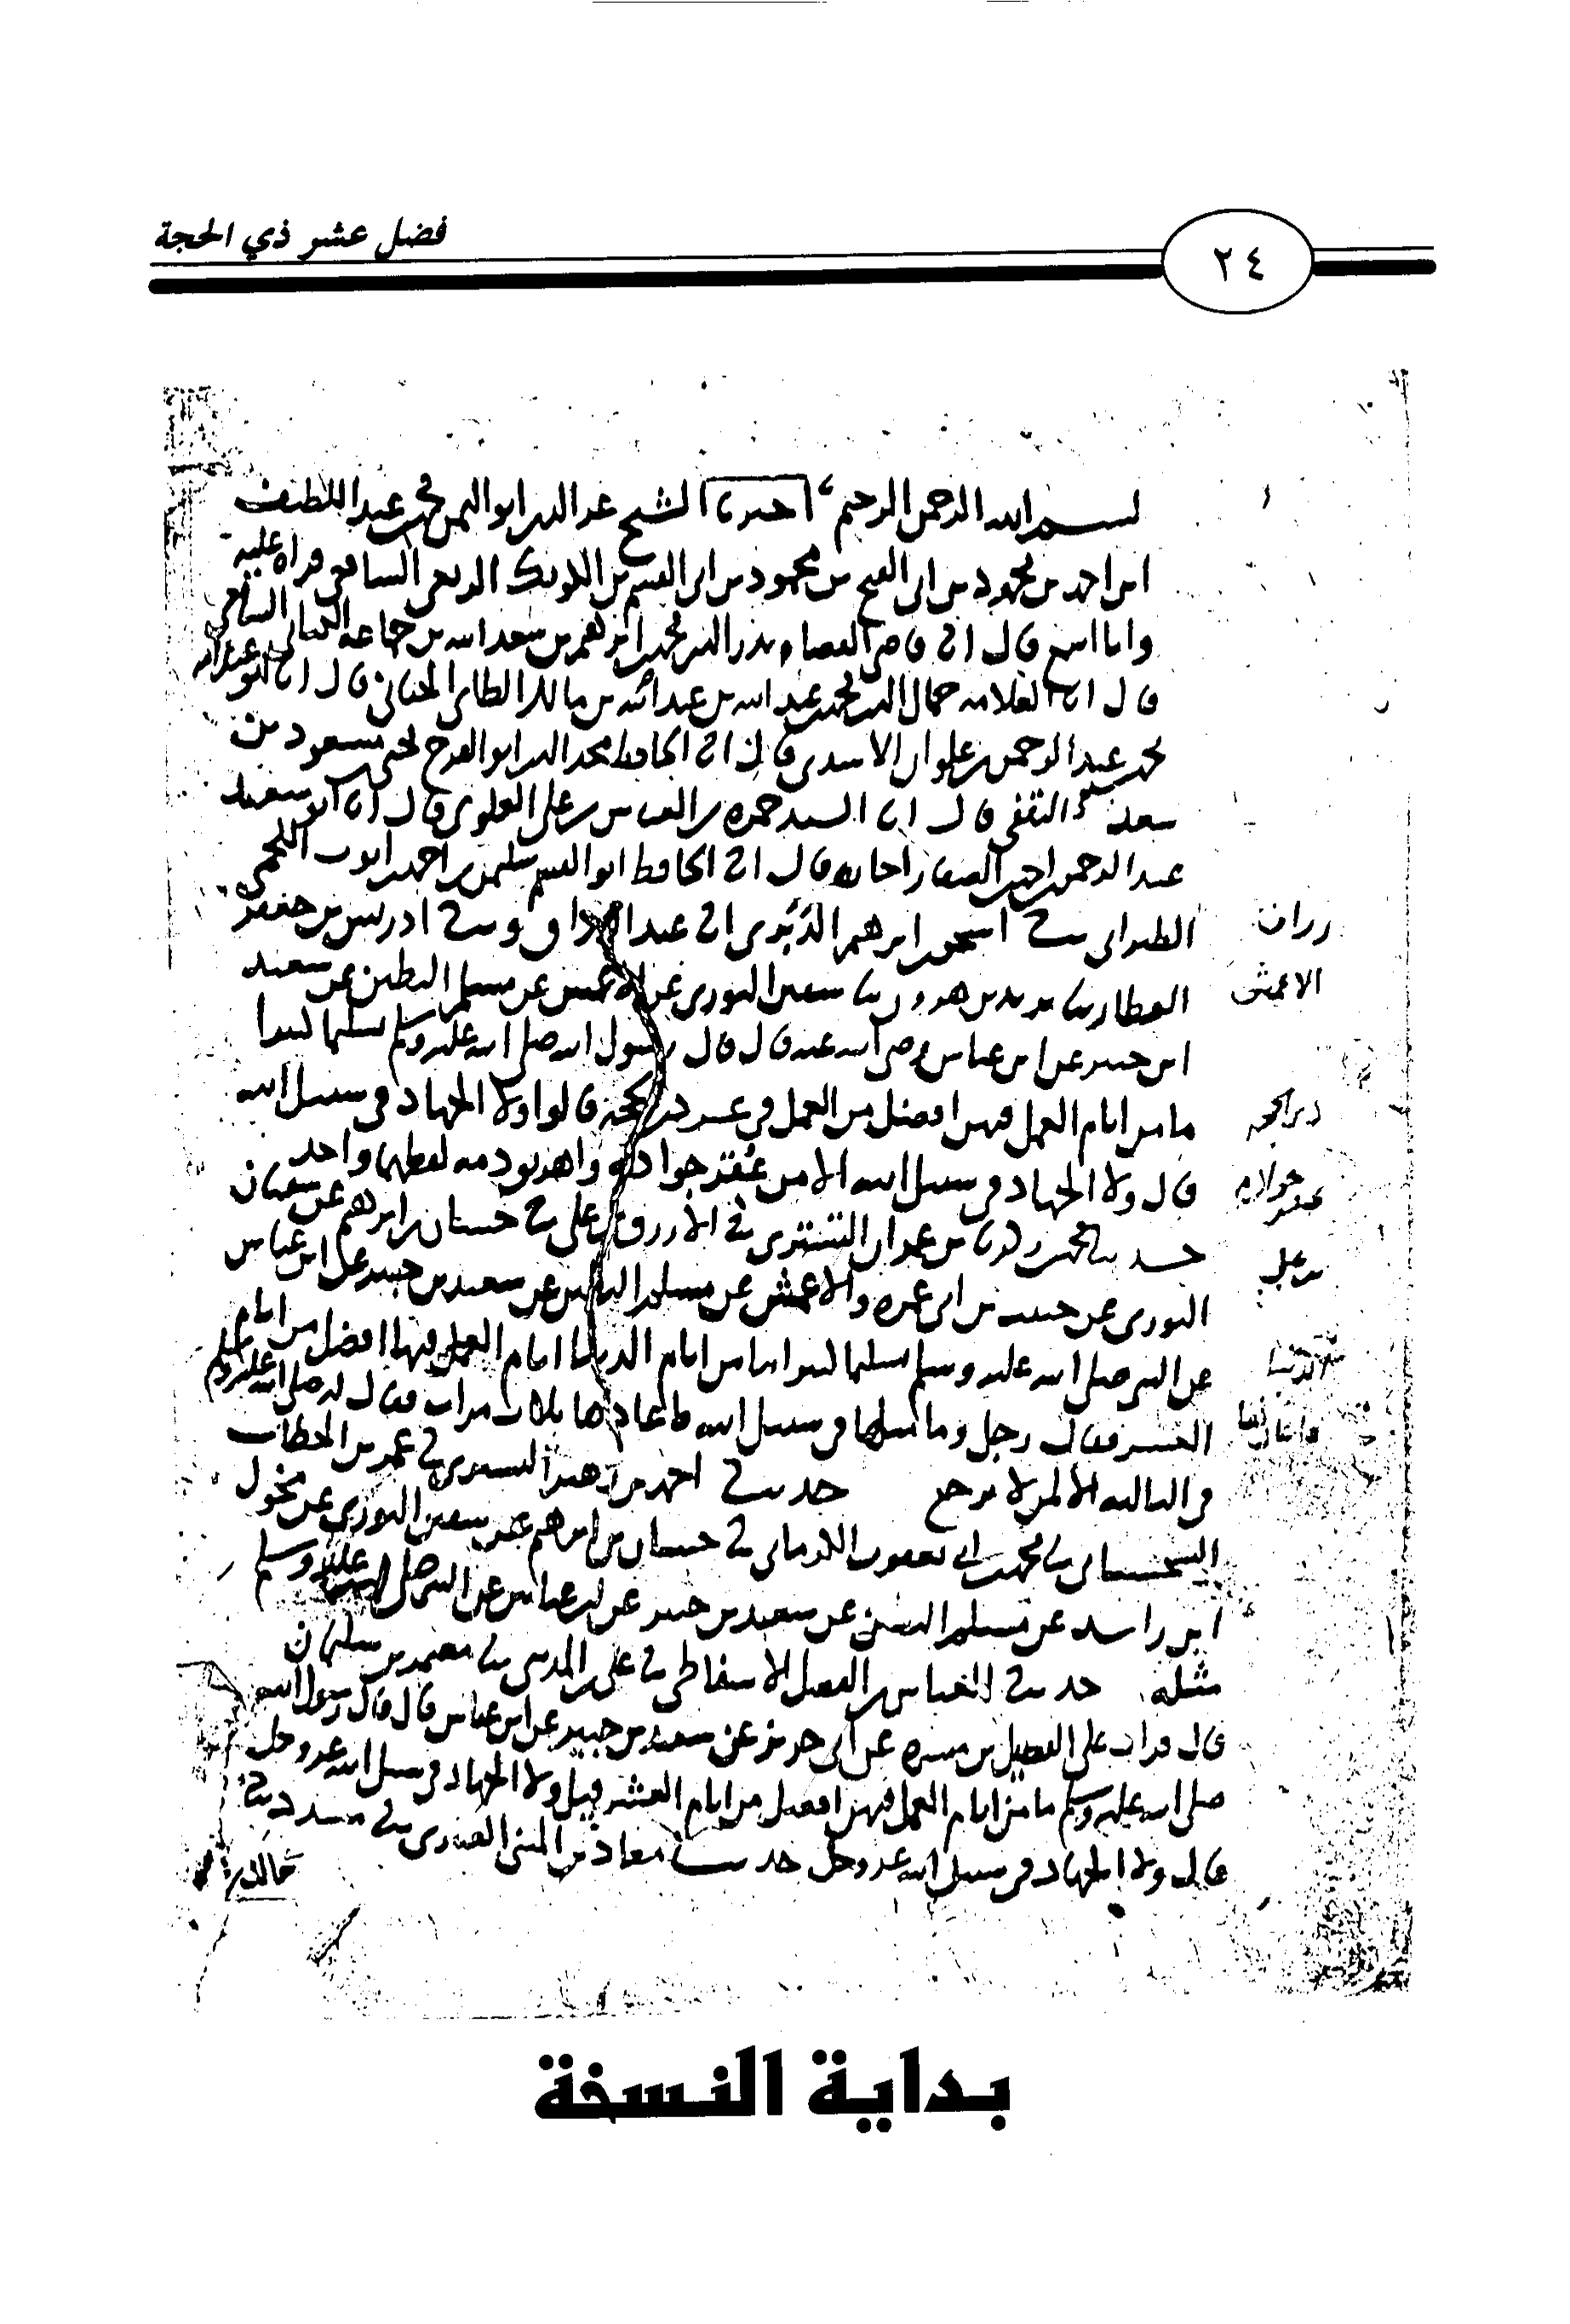 فضل عشر ذي الحجة
٢٤
بسم الله الرحمن الرحيم اخبرنا الشيخ عز الدين ابو اليمن محمد بن عبد اللطيف
ابن احمد بن محمود بن ابى الفتح بن محمود بن ابى القسم بن الكويك الربعى الشافعى قراة عليه
وانا اسمع قال انا قاضى القضاة بدر الدين محمد بن ابرهيم بن سعد الله بن جماعة الكنانى الشافعى
قال انا العلامه جمال الدين محمد بن عبد الله بن عبد الله بن مالك الطائى الجيانى قال انا ابو عبد الله
محمد بن عبد الرحمن بن علوان الاسدى قال انا الحافظ مجد الدين ابو الفرج يحيى بن مسعود بن
سعد الثقفى قال انا السيد حمزه بن العباس بن على العلوى قال انا ابو سعيد
عبد الرحمن بن احمد الصفار قال انا الحافظ ابو القسم سليمن بن احمد بن ايوب اللخمى
الطبرانى ثنا اسحق بن ابرهيم الدَّبَرى انا عبد الرزاق وثنا ادريس بن جعفر
العطار ثنا يزيد بن هرون ثنا سفين الثورى عن الاعمش عن مسلم البطين عن سعيد
الاعمش
ابن جبير عن ابن عباس رضى الله عنه قال قال رسول الله صلى الله عليه وسلم تسليما كثيرا
ما من ايام العمل فيهن افضل من العمل فى عشر ذى الحجة قالوا ولا الجهاد فى سبيل الله
ذى الحجه
قال ولا الجهاد فى سبيل الله الا من عُقر جواده واهريق دمه لفظهما واحد
عقر جواده
حدثنا محمد بن عمران التسترى ثنا الازرق بن على ثنا حسان بن ابرهيم عن سفيان
بن على
الثورى عن حبيب بن ابى عمره والاعمش عن مسلم البطين عن سعيد بن جبير عن ابن عباس
عن النبى صلى الله عليه وسلم تسليما كثيرا ما من ايام الدنيا ايام العمل فيها افضل من ايام
العشر فقال رجل وما مثلها فى سبيل الله فاعادها ثلاث مرات فقال له صلى الله عليه وسلم
فى الثالثه الا لمن لا يرجع حدثنا احمد بن زهير التسترى ثنا عمر بن الخطاب
السجستانى ثنا محمد بن ابى يعقوب الكرمانى ثنا حسان بن ابرهيم عن سفين الثورى عن مخول
ابن راشد عن مسلم البطين عن سعيد بن جبير عن ابن عباس عن النبى صلى الله عليه وسلم
مثله حدثنا العباس بن الفضل الاسفاطى ثنا على بن المدينى ثنا معتمر بن سليمان
قال قرات على الفضيل بن ميسره عن ابى حريز عن سعيد بن جبير عن ابن عباس قال قال رسول الله
صلى الله عليه وسلم ما من ايام العمل فيهن افضل من ايام العشر قيل ولا الجهاد فى سبيل الله عز وجل
قال ولا الجهاد فى سبيل الله عز وجل حدثنا معاذ بن المثنى العنبرى ثنا مسدد ثنا
خالد
بداية النسخة